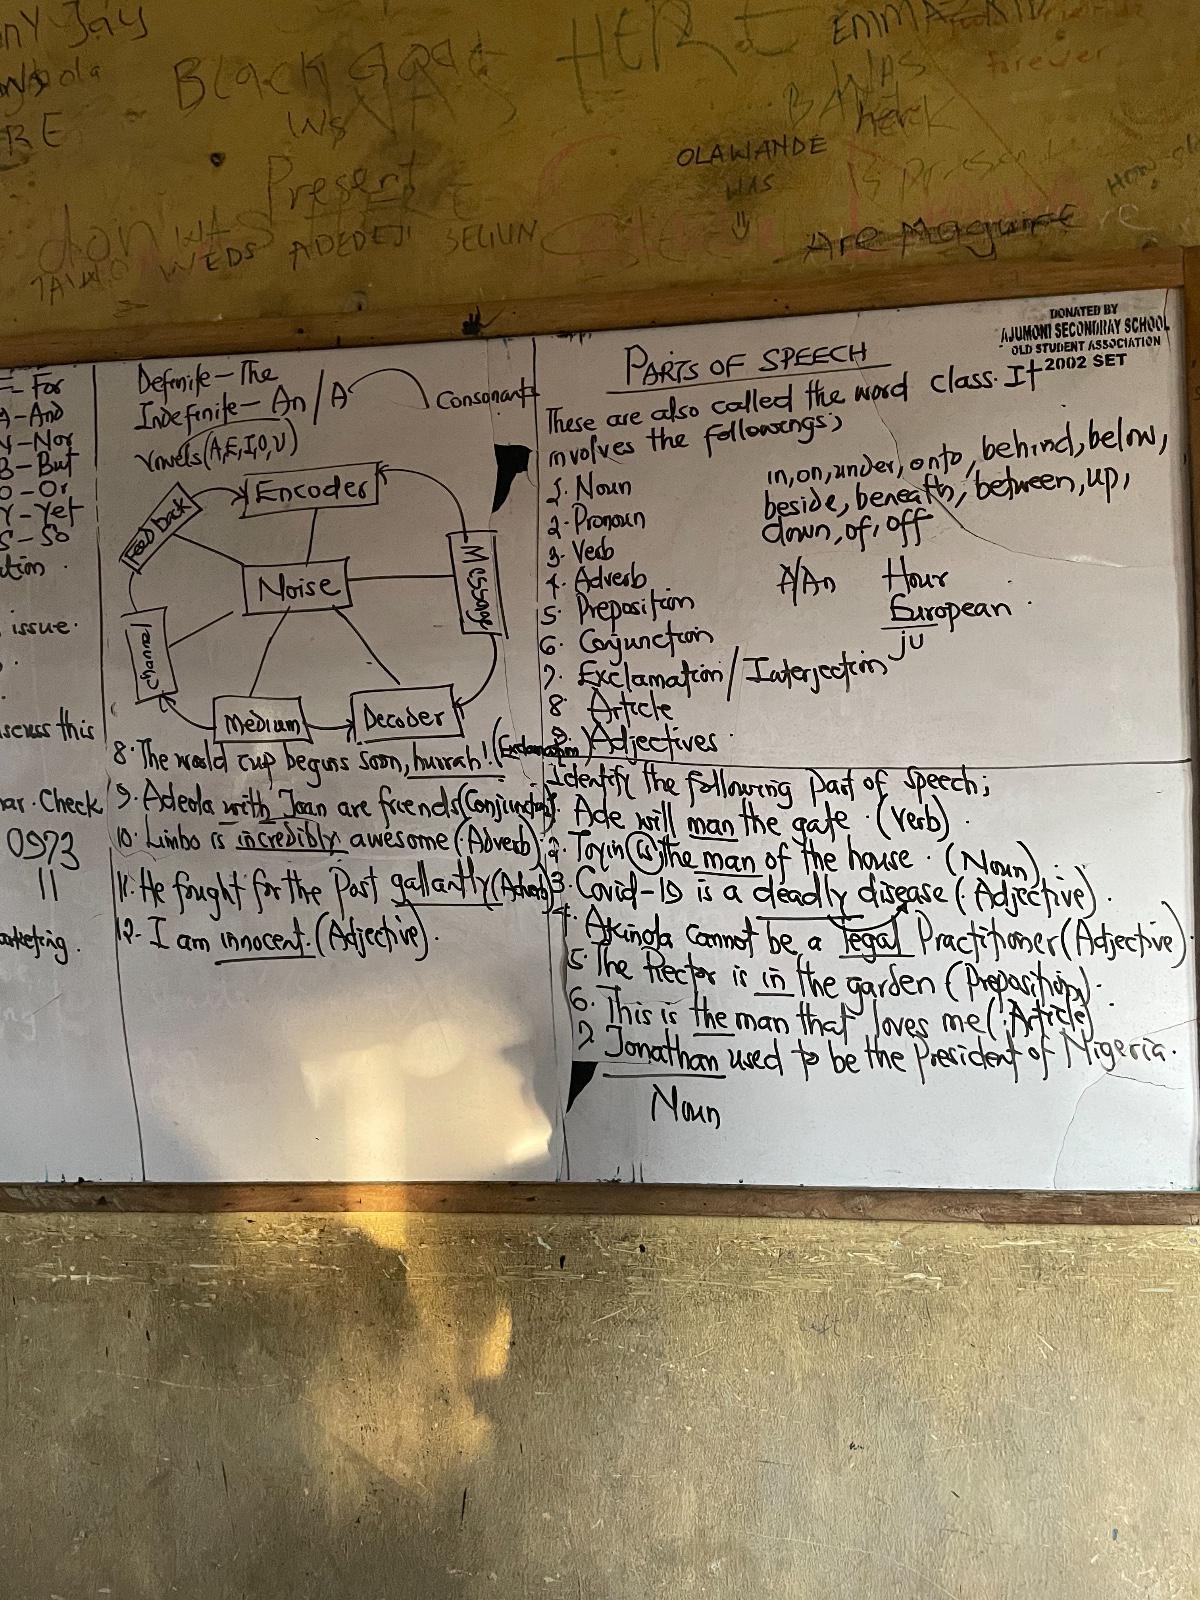 Black Goat
EMMA
HERE
WAS
forever
Ws
WAS
here
RE
OLAWANDE
WAS
Present
WEDS ADEDEJI SEGUN
Are Maguire
DONATED BY
AJUMONI SECONDRAY SCHOOL
OLD STUDENT ASSOCIATION
2002 SET
F- For
A-And
N-Nor
B-But
O-Or
Y-Yet
S-So
issue.
this
Check
0973
11
Definite - The
Indefinite - An / A
Consonants
Vowels (A,E,I,O,U)
Encoder
Feed back
Noise
Message
Channel
Medium
Decoder
8. The world cup begins soon, hurrah! (Exclamation)
9. Adeola with Joan are friends (Conjunction)
10. Limbo is incredibly awesome (Adverb)
11. He fought for the Past gallantly (Adverb)
12. I am innocent. (Adjective).
PARTS OF SPEECH
These are also called the word class. It
involves the followings;
1. Noun
2. Pronoun
3. Verb
4. Adverb
5. Preposition
6. Conjunction
7. Exclamation / Interjection
8. Article
9. Adjectives.
in, on, under, onto, behind, below,
beside, beneath, between, up,
down, of, off
A/An Hour
European
ju
Identify the following Part of speech;
1. Ade will man the gate. (Verb).
2. Toyin is the man of the house. (Noun)
3. Covid-19 is a deadly disease (Adjective).
4. Akinola cannot be a legal Practitioner (Adjective).
5. The Rector is in the garden (Preposition).
6. This is the man that loves me (Article)
7. Jonathan used to be the President of Nigeria.
Noun